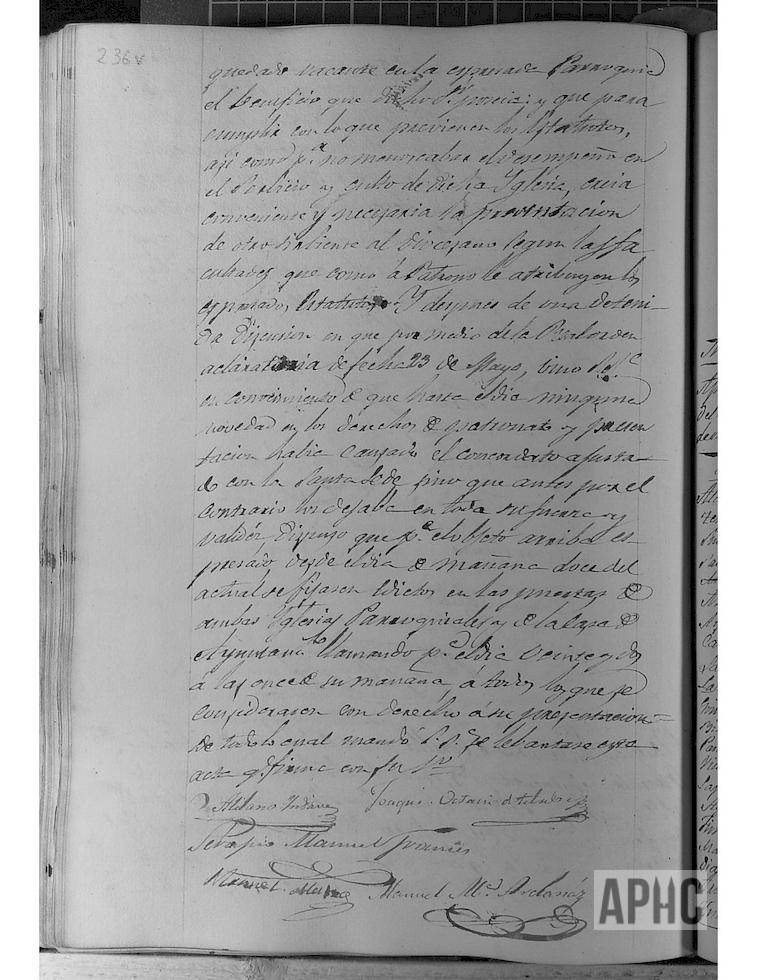 236v
quedado vacante en la espresada Parroquia
el beneficio que dicho Sr. poseia; y que para
cumplir con lo que previenen los Estatutos,
asi como pa. no menoscabar el desempeño en
el servicio y culto de dicha Yglesia, creia
conveniente y necesaria la presentacion
de otro sirbiente al Diocesano segun las fa
cultades que como á Patrono le atribuyen los
espresados Estatutos. Y despues de una deteni-
da discusion en que por medio de la Real orden
aclaratoria de fecha 23 de Mayo, vino
en convencimiento de que hasta el dia ninguna
novedad en los derechos de patronato y presen
tacion habia causado el concordato ajusta-
do con la Santa Sede sino que antes por el
contrario los dejaba en toda su fuerza y
validéz dispuso que pa. el objeto arriba es-
presado desde el dia de mañana doce del
actual se fijasen edictos en las puertas de
ambas Yglesias Parroquiales y de la Casa de
Ayuntamto. llamando pa. el dia veinte y dos
á las once de su mañana á todos los que se
considerasen con derecho á su presentacion=
De todo lo cual mandó S. S. se lebantase esta
acta q. firma con su Srio.
Joaqn. Octavio de Toledo
Serapio Manuel Francés
Manuel Manuel Ma. Arclanáz
APHC